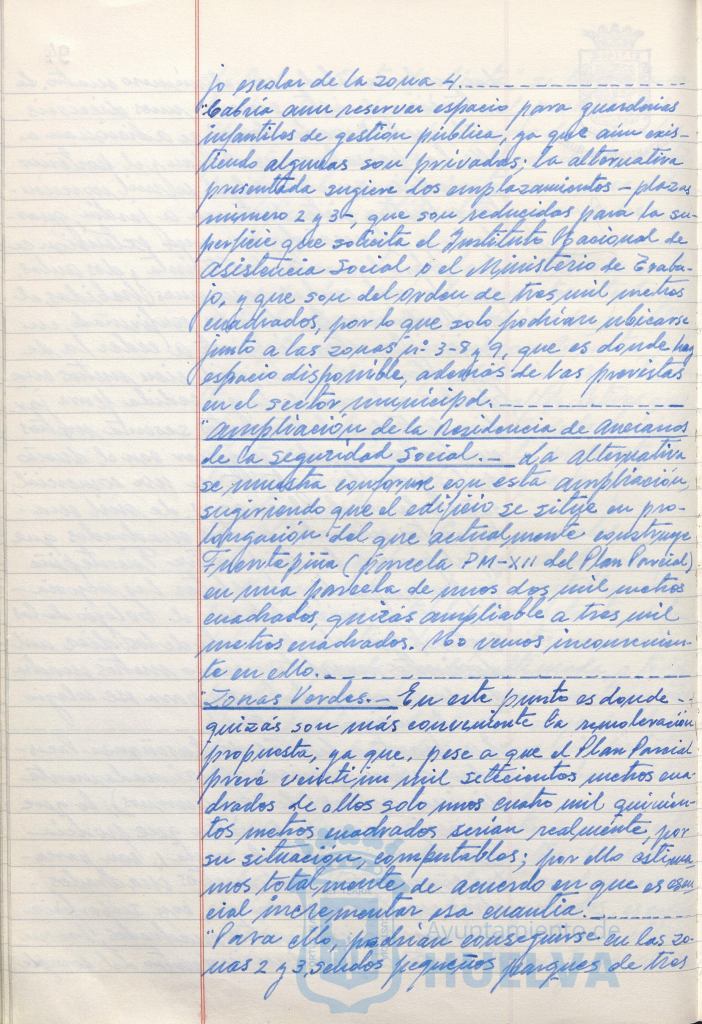 jo escolar de la zona 4.
"Cabría aun reservar espacio para guarderias
infantiles de gestión pública, ya que aún exis-
tiendo algunas son privadas; la alternativa
presentada sugiere dos emplazamientos - plazas
número 2 y 3-, que son reducidas para la su-
perficie que solicita el Instituto Nacional de
Asistencia Social o el Ministerio de Traba-
jo, y que son del orden de tres mil metros
cuadrados, por lo que solo podrían ubicarse
junto a las zonas nº 3-8 y 9, que es donde hay
espacio disponible, además de las previstas
en el sector municipal.
"Ampliación de la Residencia de Ancianos
de la Seguridad Social.- La alternativa
se muestra conforme con esta ampliación,
sugiriendo que el edificio se situe en pro-
longación del que actualmente construye
Fuentepiña (parcela PM-XII del Plan Parcial)
en una parcela de unos dos mil metros
cuadrados, quizás ampliable a tres mil
metros cuadrados. No vemos inconvenien-
te en ello.
"Zonas Verdes.- En este punto es donde
quizás son más conveniente la remodelación
propuesta, ya que, pese a que el Plan Parcial
prevé veintiun mil setecientos metros cua-
drados de ellos solo unos cuatro mil quinien-
tos metros cuadrados serían realmente, por
su situación, computables; por ello estima-
mos totalmente de acuerdo en que es esen-
cial incrementar esa cuantía.
"Para ello, podrían conseguirse en las zo-
nas 2 y 3, sendos pequeños parques de tres
Ayuntamiento de
HUELVA